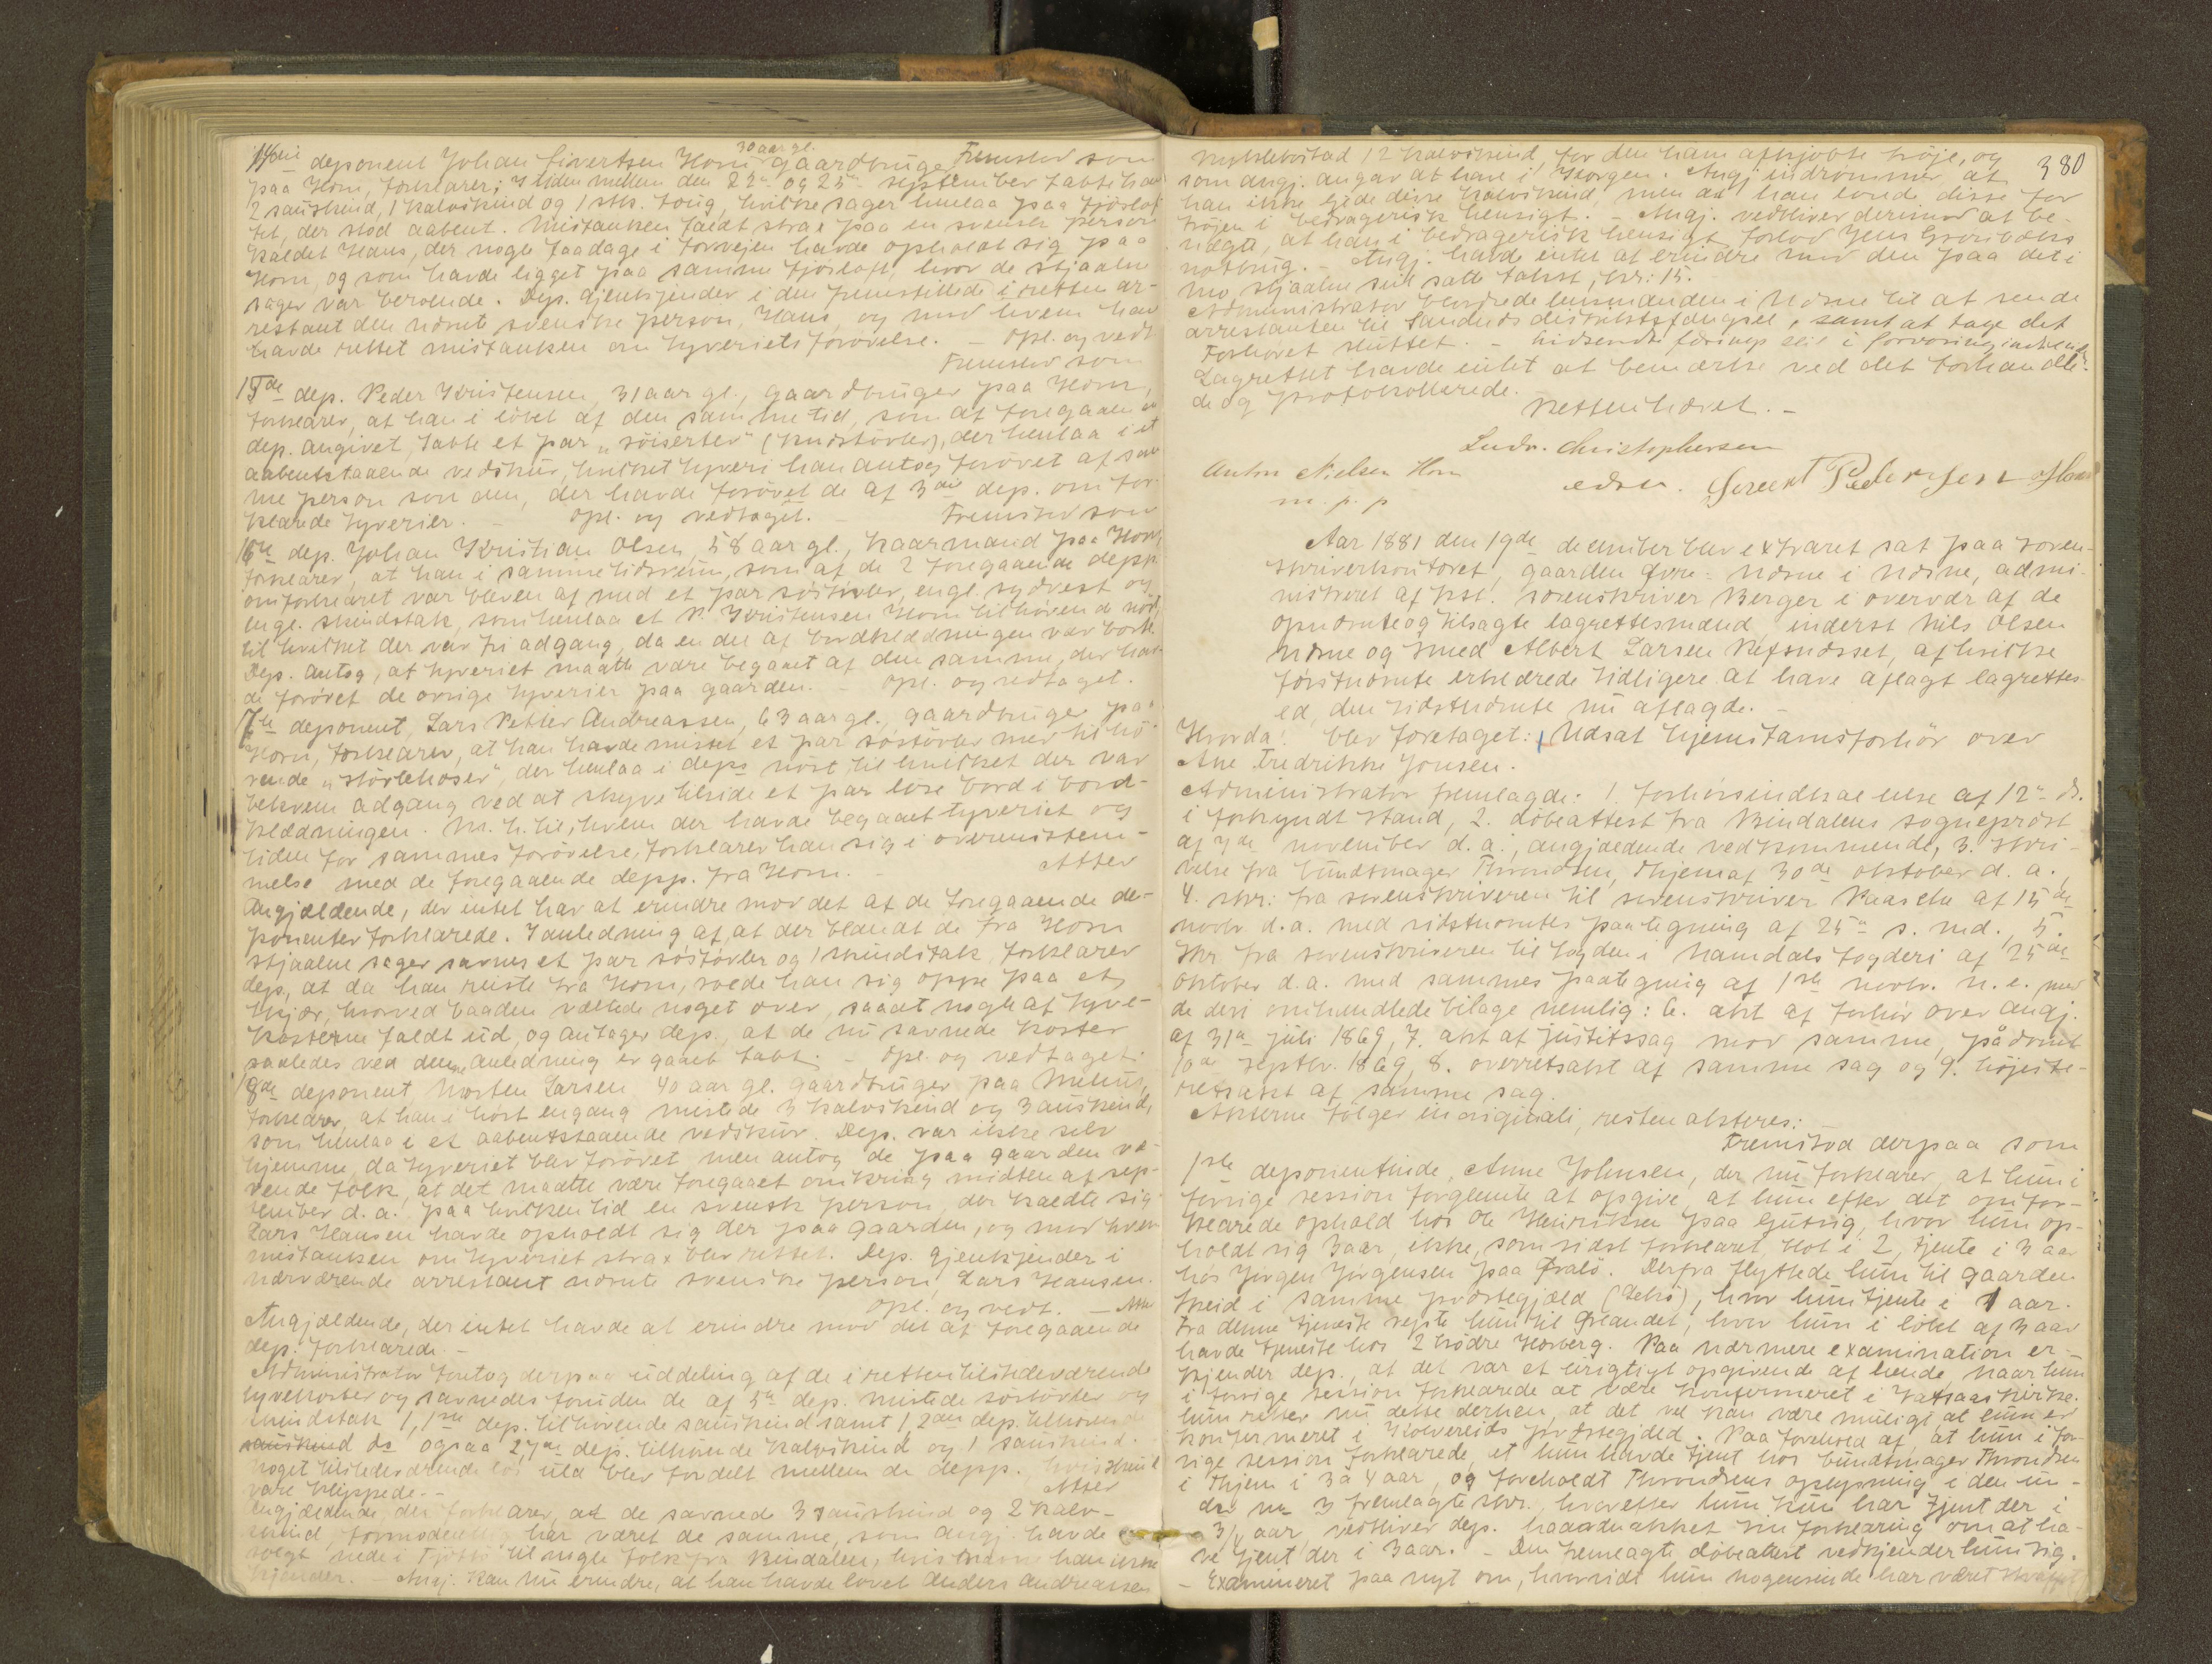 Fremstod som
14de deponent Johan Sivertsen Horn 30 aar gl. gaardbruger
paa Horn, forklarer: I tiden mellem den 22de og 25de september tabte han
2 sauskind, 1 kalvskind og 1 stk. toug, hvilke sager henlaa paa fjøslof-
tet, der stod aabent. Mistanken faldt strax paa en svensk person
kaldet Hans, der nogle faa dage i forvejen havde opholdt sig paa
Horn, og som havde ligget paa samme fjøsloft, hvor de stjaalne
sager var beroende. Dep. gjenkjender i den fremstillede i retten ar-
restant den nævnte svenske person, Hans, og mod hvem han
havde rettet mistanken om tyveriets forøvelse. - Opl. og vedt.
Fremstod som
15de dep. Peder Kristensen, 31 aar gl., gaardbruger paa Horn,
forklarer, at han i løbet af den samme tid, som af foregaaende
dep. angivet, tabte et par "söiserter" (knæstøvler), der henlaa i et
aabentstaaende vedskur, hvilket tyveri han antog forøvet af sam
me person som den, der havde forøvet de af 3die dep. omfor-
klarede tyverier. - Opl. og vedtaget. - Fremstod som
16de dep. Johan Kristian Olsen, 58 aar gl., kaarmand paa Horn,
forklarer, at han i samme tidsrum, som af de 2 foregaaende depp.
omforklaret var bleven af med et par søstøvler, engl. sydvest og
engl. skindstak, som henlaa et P. Kristensen Horn tilhørende nøst,
til hvilket der var fri adgang, da en del af bordklædningen var borte.
Dep. antog, at tyveriet maatte være begaaet af den samme, der hav-
de forøvet de øvrige tyverier paa gaarden. - Opl. og vedtaget.
17de deponent, Lars Petter Andreassen, 63 aar gl., gaardbruger paa
Horn, forklarer, at han havde mistet et par søstøvler med tilhø-
rende "störlehoser", der henlaa i deps nøst, til hvilket der var
bekvem adgang ved at skyve tilside et par løse bord i bord-
klædningen. M. h. til, hvem der havde begaaet tyveriet og
tiden for sammes forøvelse, forklarer han sig i overensstem-
melse med de foregaaende depp. fra Horn. - Atter
Angjældende, der intet har at erindre mod det af de foregaaende de-
ponenter forklarede. I anledning af, at der blandt de fra Horn
stjaalne sager savnes et par søstøvler og 1 skindstak, forklarer
dep., at da han reiste fra Horn, roede han sig oppe paa et
skjær, hvorved baaden væltede noget over, saaat nogle af tyve-
kosterne faldt ud, og antager dep., at de nu savnede koster
saaledes ved den anledning er gaaet tabt. - Opl. og vedtaget.
18de deponent Morten Larsen 40 aar gl. gaardbruger paa
forklarer, at han i høst engang mistede 3 kalvskind og 3 sauskind,
som henlaa i et aabentstaaende vedskur. Dep. var ikke selv
hjemme, da tyveriet blev forøvet men antog de paa gaarden væ-
rende folk, at det maatte være foregaaet omkring midten af sep-
tember d. a. paa hvilken tid en svensk person, der kaldte sig
Lars Hansen havde opholdt sig der paa gaarden, og mod hvem
mistanken om tyveriet strax blev rettet. Dep. gjenkjender i
nærværende arrestant nævnte svenske person, Lars Hansen.
Opl. og vedt. - Atter
Angjældende, der intet havde at erindre mod det af foregaaende
dep. forklarede. -
Administrator foretog derpaa uddeling af de i retten tilstedeværende
tyvekoster og savnedes foruden de af 5te dep. mistede søstøvler og
skindstak 1, 1ste dep. tilhørende sauskind samt 1, 2den dep. tilhørende
do ogsaa 27de dep. tilhørende kalvskind og 1 sauskind.
Noget tilstedeværende løs uld blev fordelt mellem de depp. hvis skind
vare klippede. - Atter
Angjældende, der forklarer, at de savnede 3 sauskind og 2 kalv-
skind formodentlig har været de samme, som angj. havde
solgt nede i Tjøtø til nogle folk fra Bindalen, hvis navne han ikke
kjender. - Angj. kan nu erindre, at han havde lovet Anders Andreassen
380
12 kalvskind, for den ham afkjøbte trøje, og
som angj. angav at have i Horgen. Angj. indrømmer at
han ikke ejede disse kalvskind, men at han lovede disse for
trøjen i bedragerisk hensigt. - Angj. vedbliver derimod at be-
nægte, at han i bedragerisk hensigt forlod Jens
notbrug. - Angj. havde intet at erindre mod den paa det i
Mo stjaalne seil satte takst, kr: 15.
Administrator beordrede lensmanden i Næsne til at sende
arrestanten til Sandnes distriktsfængsel, samt at tage det
Forhøret sluttet. - i forvaring
Lagrettet havde intet at bemærke ved det forhandle-
de og protokollerede.
Retten hævet. -
Ludv. Christophersen
Anton Nielsen Horn
m. p. p
edsv. Sivert Pedersen

Aar 1881 den 19de december blev extraret sat paa soren-
skriverkontoret, gaarden Øvre-Næsne i Næsne, admi-
nistreret af kst. sorenskriver Berger i overvær af de
opnævnte og tilsagte lagrettesmænd, inderst Nils Olsen
Næsne og smed Albert Larsen Refsnæsset, af hvilke
førstnævnte erklærede tidligere at have aflagt lagrettes
ed, den sidstnævnte nu aflagde. -
Hvorda! blev foretaget: Udsat hjemstavnsforhør over
Ane Fredrikke Jonsen.
Administrator fremlagde: 1. forhørsindkaldelse af 12te ds.
i forkyndt stand, 2. døbeattest fra Bindalens sogneprest
af 7de november d. a., angjældende vedkommende, 3. skri-
velse fra bundtmager Throndsen, Thjem af 30de oktober d. a.,
4. skr: fra sorenskriveren til sorenskriver Raasche af 15de
novbr. d. a. med sidstnævntes paategning af 25de s. md., 5.
Skr. fra sorenskriveren til fogden i Namdals fogderi af 25de
oktober d. a. med sammes paategning af 1ste novbr. n. e. med
de deri omhandlede bilage nemlig: 6. akt af forhør over angj.
af 31te juli 1869, 7. akt af justitssag mod samme, pådømt
10de septbr. 1869, 8. overretsakt af samme sag og 9. højeste-
retsakt af samme sag.
Akterne følger in originali, resten akteres:
Fremstod derpaa som
1ste deponentinde, Anne Johnsen, der nu forklarer, at hun i
forrige session forglemte at opgive, at hun efter det omfor-
klarede ophold hos Ole Henriksen paa Gutvig, hvor hun op-
holdt sig 3 aar, ikke, som sidst forklaret, blot i 2, tjente i 3 aar
hos Jørgen Jørgensen paa Øralø. Derfra flyttede hun til gaarden
Skeid i samme præstegjæld (Lekø), hvor hun tjente i 1 aar.
Fra denne tjeneste rejste hun til Ørlandet, hvor hun i løbet af 3 aar
havde tjeneste hos 2 brødre Hosberg. Paa nærmere examination er-
kjender dep., at det var et urigtigt opgivende af hende, naar hun
i forrige session forklarede at være konfirmeret i Vatsaas kirke.
Hun retter nu dette derhen, at det vel kan være muligt at hun er
konfirmeret i Kolvereids præstegjeld. Paa forehold af, at hun i for-
rige session forklarede, at hun havde tjent hos bundtmager Throndsen
i Thjem i 3 à 4 aar, og foreholdt Throndsens oplysning i den un-
der no 3 fremlagte skr., hvorefter hun kun har tjent der i
3/4 aar, vedbliver dep. haardnakket sin forklaring om at ha-
ve tjent der i 3 aar. - Den fremlagte døbeattest vedkjender hun sig.
- Examineret paa nyt om, hvorvidt hun nogensinde har været straffet